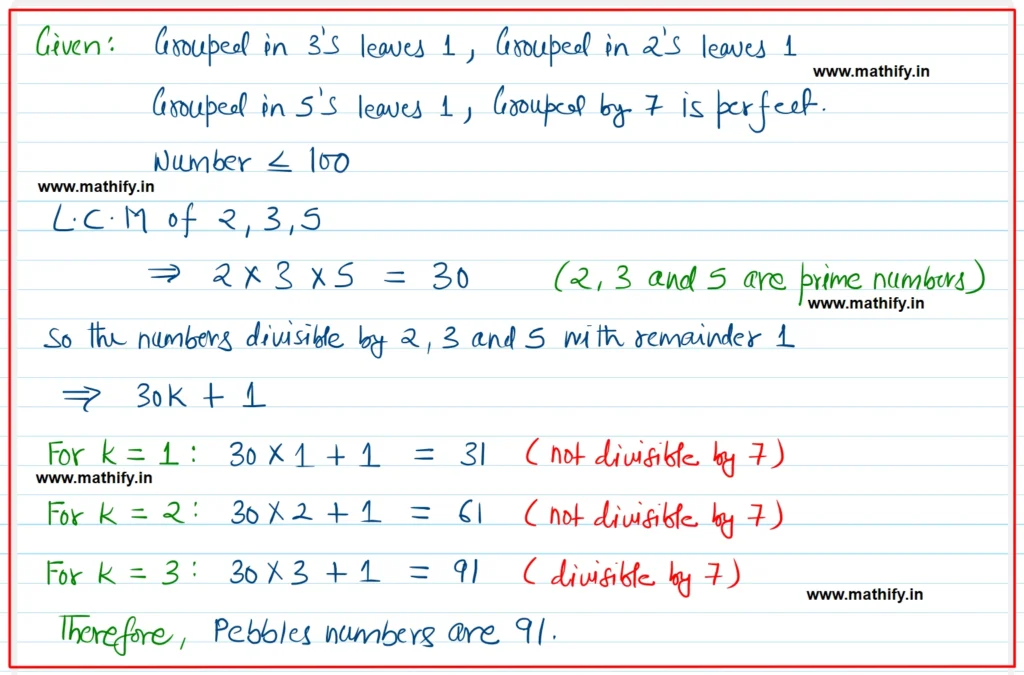 Given: Grouped in 3's leaves 1, Grouped in 2's leaves 1
www.mathify.in
Grouped in 5's leaves 1, Grouped by 7 is perfect.
Number ≤ 100
www.mathify.in
L.C.M of 2, 3, 5
⇒ 2 × 3 × 5 = 30 (2, 3 and 5 are prime numbers)
www.mathify.in
So the numbers divisible by 2, 3 and 5 with remainder 1
⇒ 30K + 1
For k = 1: 30 × 1 + 1 = 31 (not divisible by 7)
www.mathify.in
For k = 2: 30 × 2 + 1 = 61 (not divisible by 7)
For k = 3: 30 × 3 + 1 = 91 (divisible by 7)
www.mathify.in
Therefore, Pebbles numbers are 91.